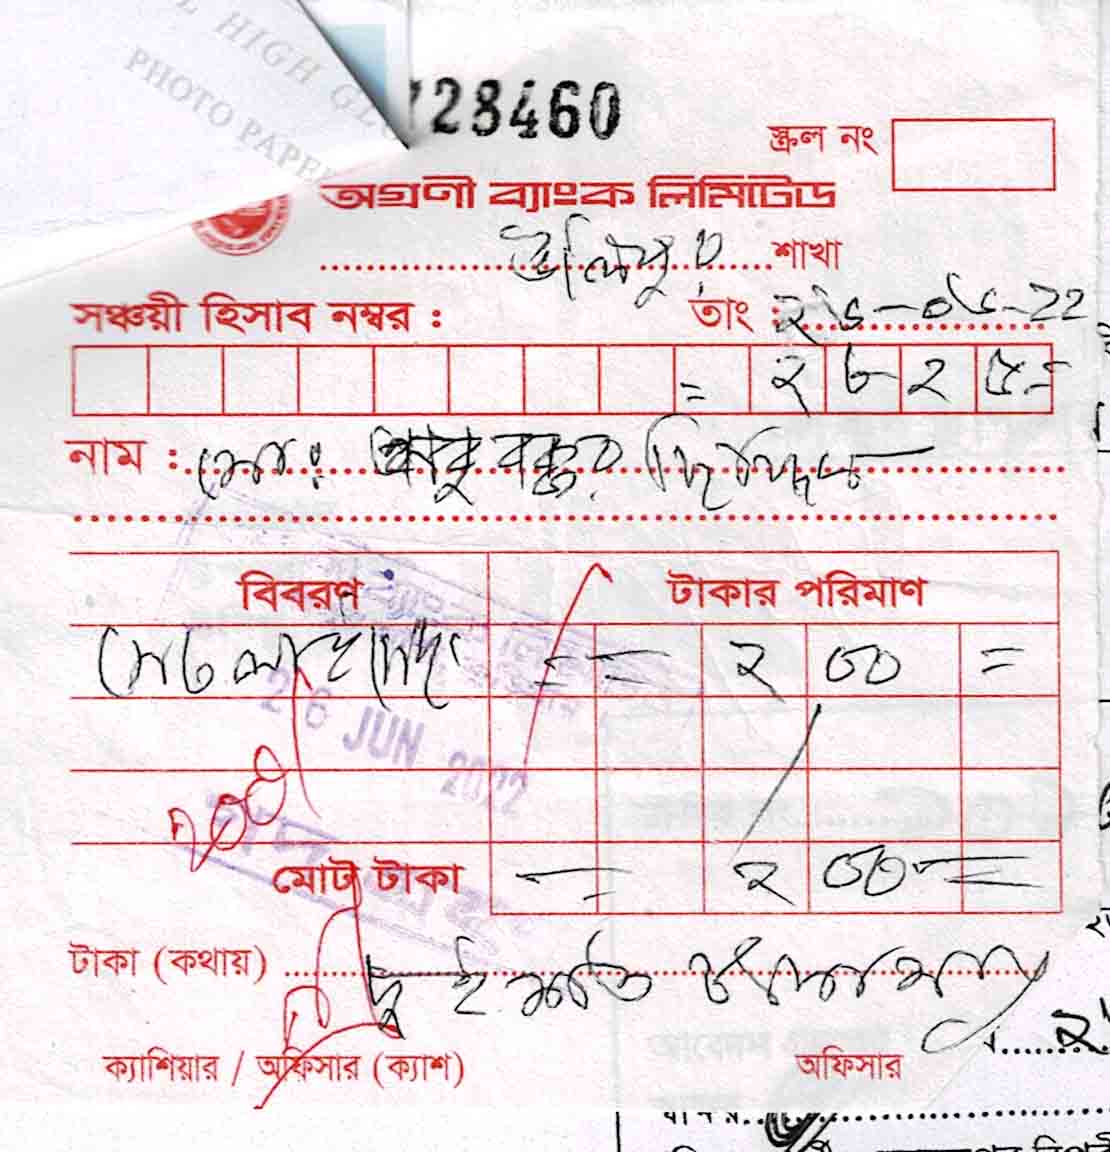 HIGH GL
PHOTO PAPE
28460
স্ক্রল নং
অগ্রণী ব্যাংক লিমিটেড
উলিপুর শাখা
সঞ্চয়ী হিসাব নম্বর : তাং : ২৬-০৬-22
= ২৮২৫=
নাম : মোঃ আবু বক্কর ছিদ্দিক
বিবরণ টাকার পরিমাণ
== ২০০ =
26 JUN 2022
২০০
মোট টাকা = ২০০ =
টাকা (কথায়) দুই শত টাকা মাত্র
ক্যাশিয়ার / অফিসার (ক্যাশ) অফিসার